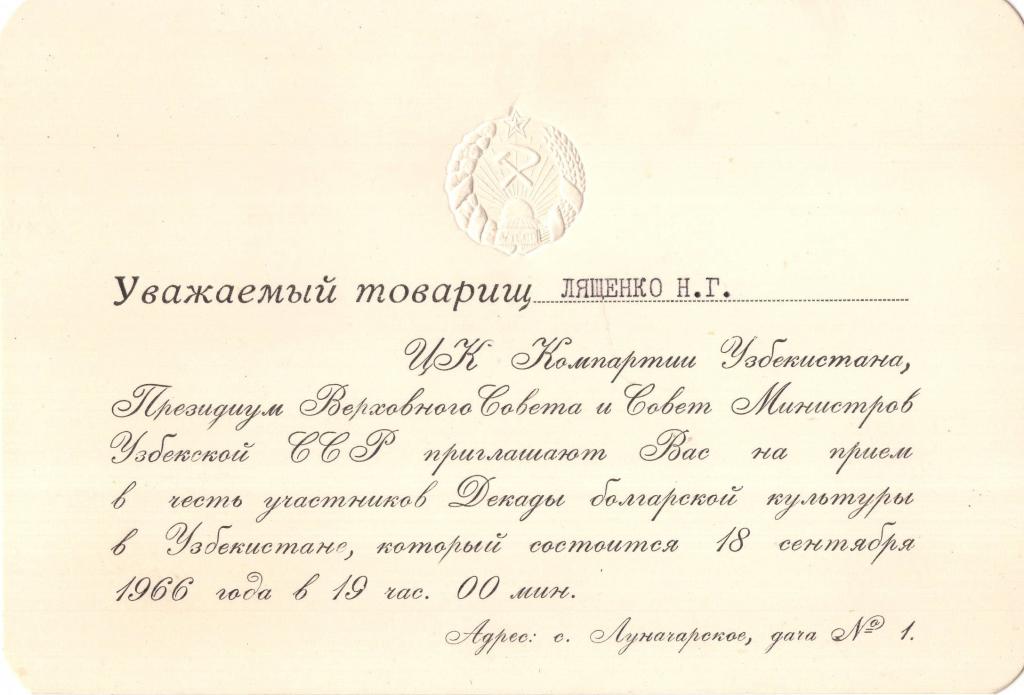 Уважаемый товарищ ЛЯЩЕНКО Н.Г.
ЦК Компартии Узбекистана,
Президиум Верховного Совета и Совет Министров
Узбекской ССР приглашают Вас на прием
в честь участников Декады болгарской культуры
в Узбекистане, который состоится 18 сентября
1966 года в 19 час. 00 мин.
Адрес: с. Луначарское, дача № 1.